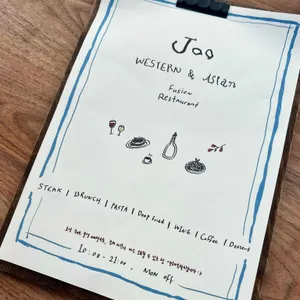 Joo
WESTERN & Asian
Fusion
Restaurant
STEAK | BRUNCH | PASTA | Deep Fried | WINE | Coffee | Dessert
10:00-21:00, MON off